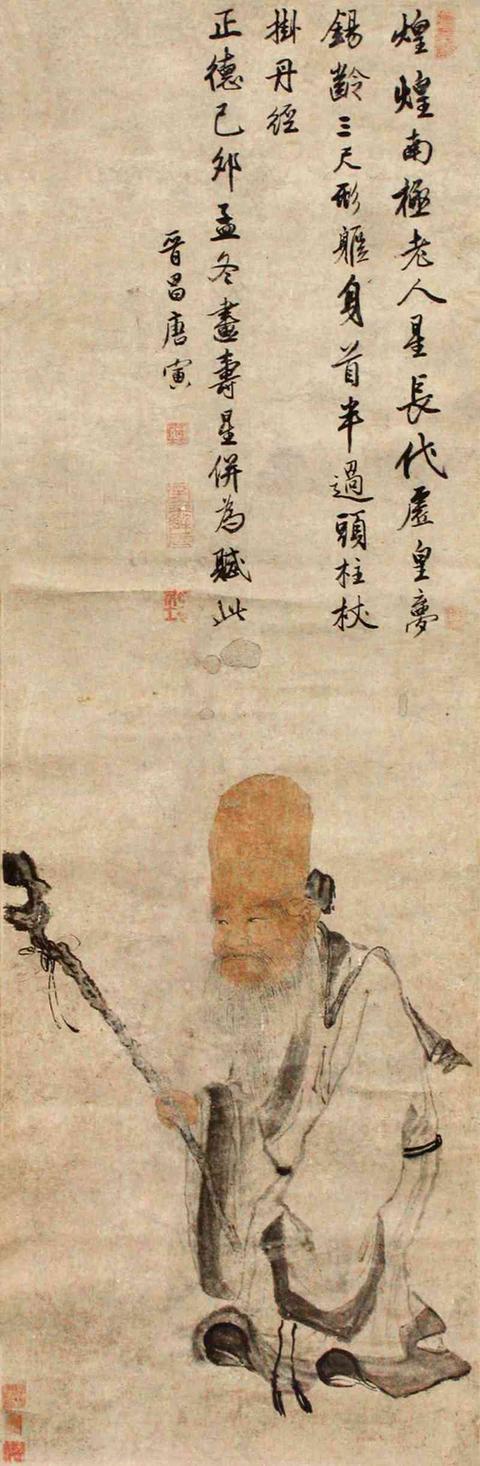 煌煌南極老人星長代虛皇夢
錫齡三尺形軀身首半過頭柱杖
掛丹經
正德己卯孟冬畫壽星併為賦此
晉昌唐寅